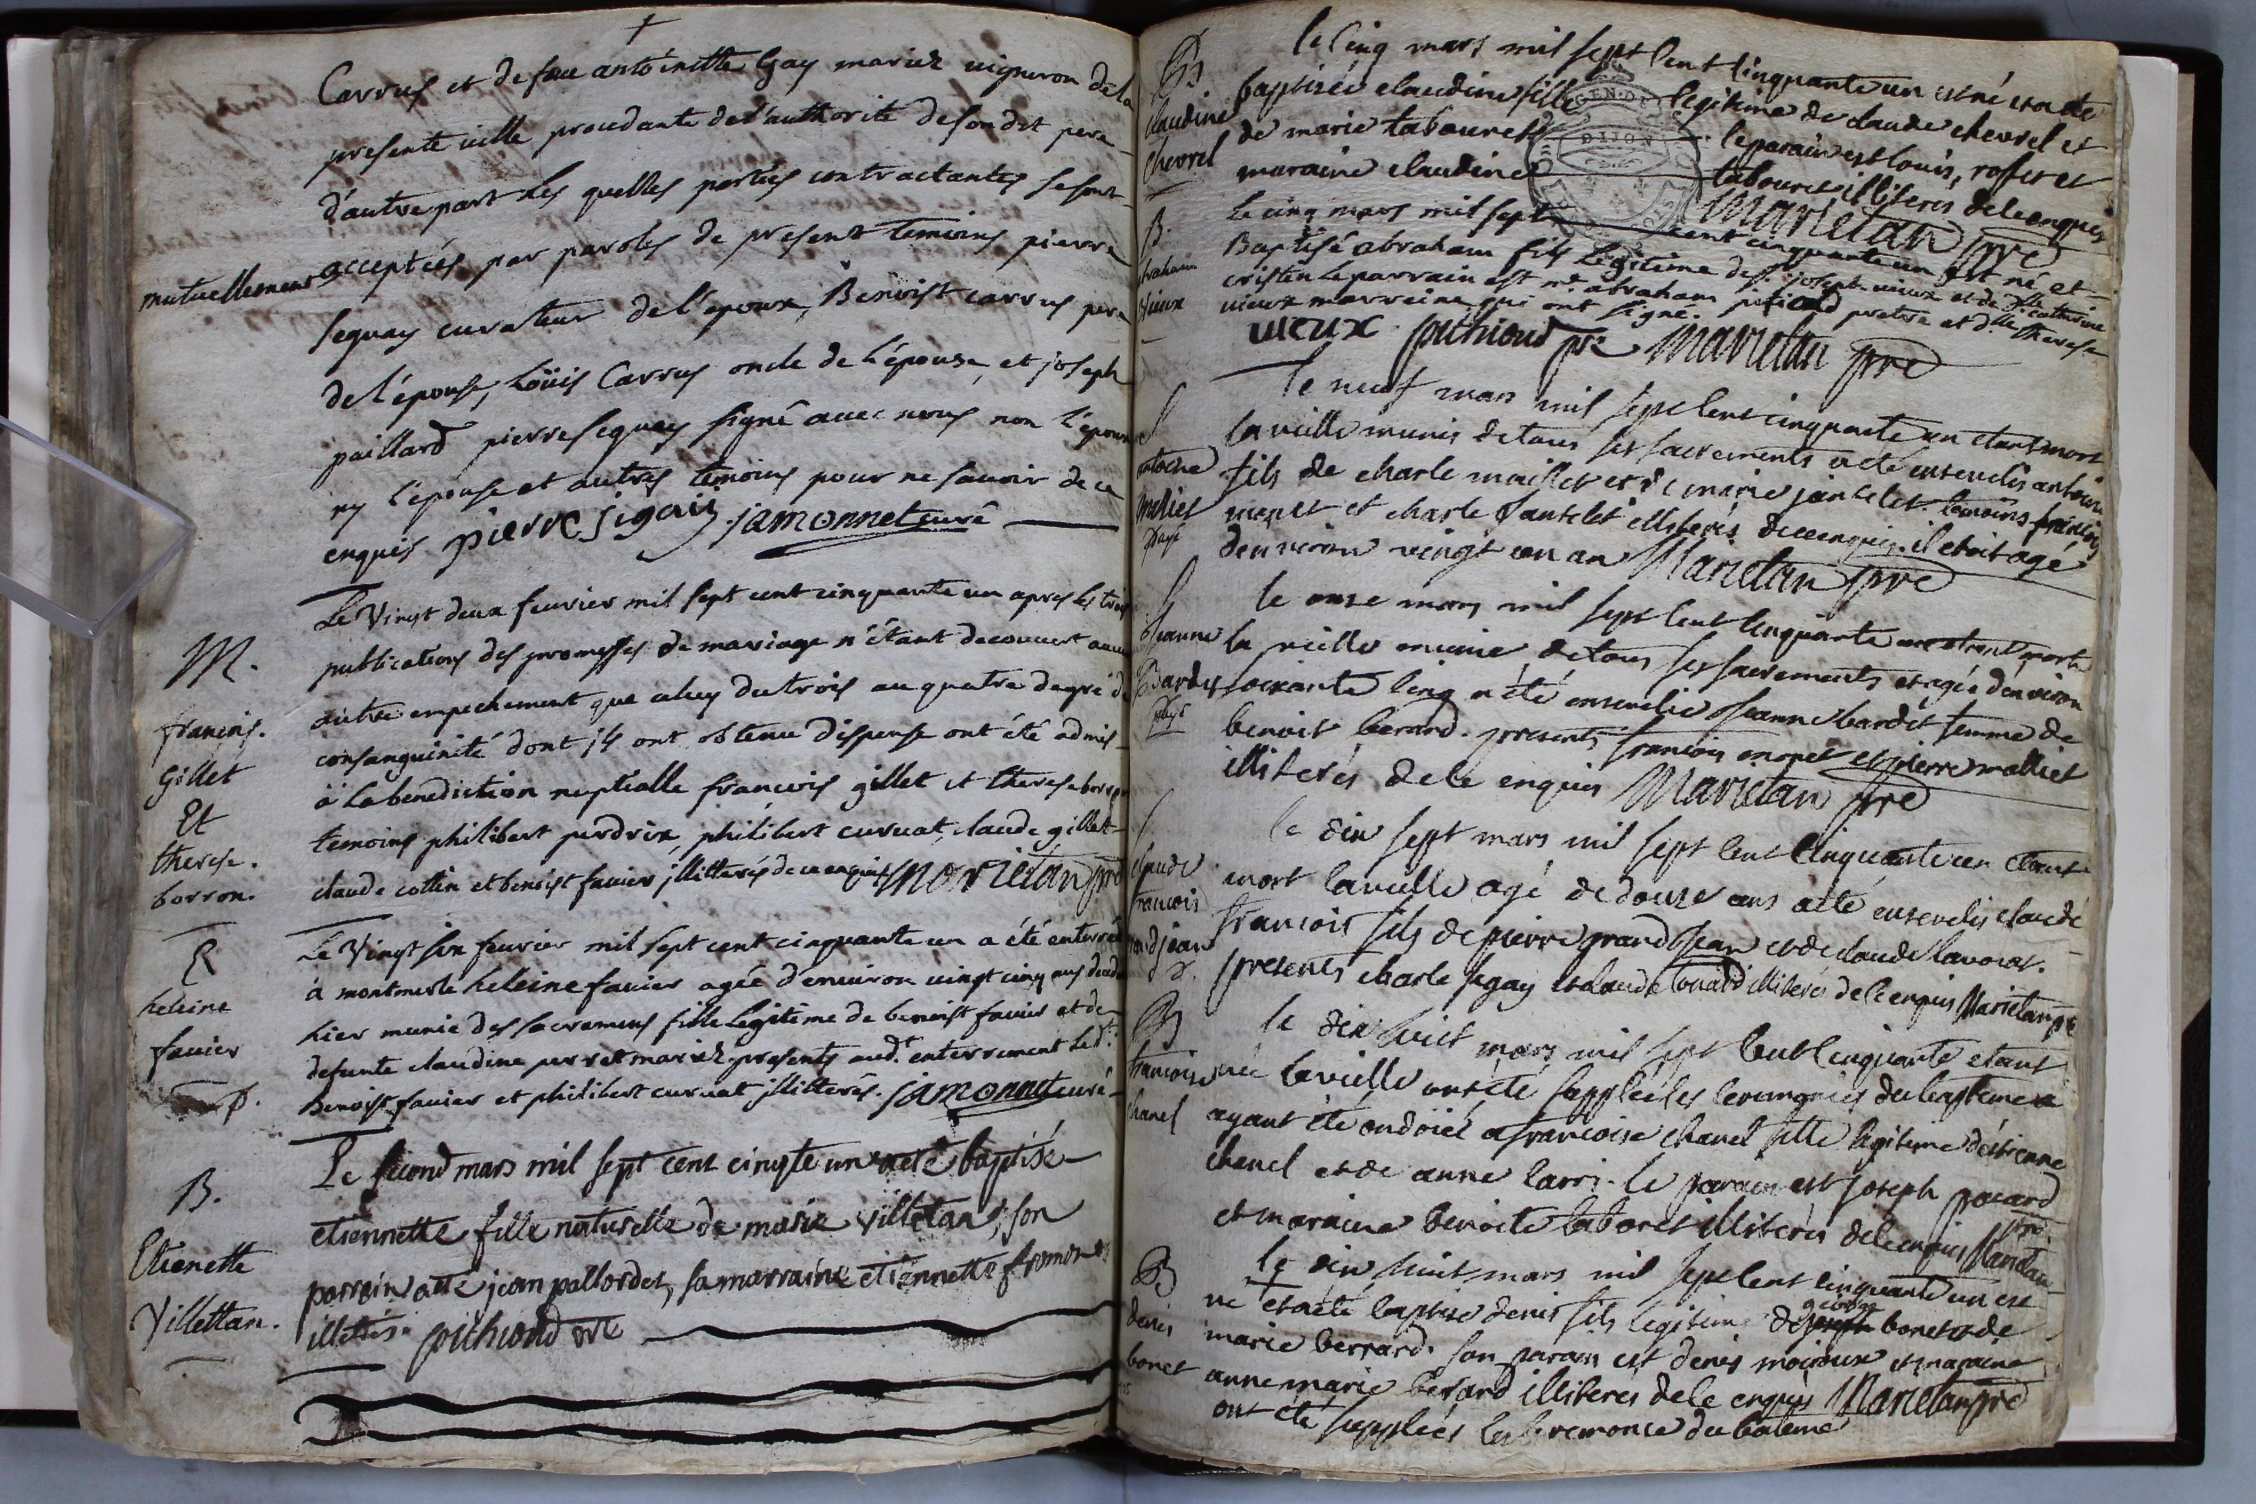 Carrus et de feue antoinette Gay mariez vigneron de la
presente ville procedante de l'authorité de son dit pere
d'autre part les quelles parties contractantes se sont
mutuellement acceptées par paroles de present temoins pierre
seguay curateur de l'epoux, Benoist carrus pere
de l'épouse, Loüis Carrus oncle de l'épouse, et joseph
paillard pierre seguay signé avec nous non l'époux
ny l'épouse et autres temoins pour ne savoir de ce
enquis pierre sigai jamonnet curé
M.
francois.
Gillet
Et
therese.
borron.
Le Vingt deux feurier mil sept cent cinquante un apres les trois
publications des promesses de mariage n'étant decouvert aucun
autre empechement que celuy du trois au quatre degré de
consanguinité dont ils ont obtenu dispense ont été admis
à la benediction nuptialle francois gillet et therese borron
temoins philibert perdrix, philibert curuat, claude gillet
claude cottin et benoist favier illitterés de ce enquis Marietan pre
E
heleine
favier
p.
Le Vingt six feurier mil sept cent cinquante un a été enterrée
à montmerle heleine favier agée d'environ vingt cinq ans decedée
hier munie des sacremens fille legitime de benoist favier et de
defunte claudine perret mariez. presents aud.t enterrement led.t
Benoist favier et philibert curuat illitterés. jamonnet curé
B.
Etienette
Villettan.
Le second mars mil sept cent cinqte un a eté baptisée
etiennette fille naturelle de marie villetan, son
parrain a eté jean pallordet, sa marraine etiennette fromont
illettés. pithiond pre
B
Claudine
Chevrel
le cinq mars mil sept cent cinquante un est né et a eté
baptisée claudine fille legitime de claude chevrel et
de marie tabouret le parain est louis, rosset et
maraine claudine tabouret illiteres de ce enquis
Marietan pre
B.
abraham
vieux
Le cinq mars mil sept cent cinquante un est né et
Baptisé abraham fils Légitime de s.r joseph vieux et de d.lle catherine
cristin Le parrain est m.e abraham pithiond pretre et d.lle therese
vieux marreine qui ont signé.
vieux pithiond pre Marietan pre
S
antoine
malliet
payé
le neuf mars mil sept cent cinquante un etant mort
la veille munis de tous ses sacrements a eté ensevelis antoine
fils de charle maillet et de marie jantelet. temoins francois
mepet et charle Jantelet illiterés de ce enquis. il etoit agé
d'environ vingt un an Marietan pre
S
Jeanne
Bardet
payé
le onse mars mil sept cent cinquante un etant morte
la veille munie de tous ses sacrements et agée d'environ
soixante cinq a été ensevelie Jeanne bardet femme de
benoit berard. presents francois mepet et pierre malliet
illiterés de ce enquis Marietan pre
S
claude
francois
grandjean
le dix sept mars mil sept cent cinquante un etant
mort la veille agé de douse ans a eté ensevelis claude
francois fils de pierre grand Jean et de claude lavorat.
presents charle segay et claude touard illiteré de ce enquis Marietan pre
B
francoise
chanel
le dix huit mars mil sept cent cinquante etant
née la veille ont eté supplée les ceremonies du bapteme
ayant été ondoiée a francoise chanel fille legitime d'estienne
chanel et de anne larri. le parain est joseph pacard
et maraine benoite taboret illiterés de ce enquis Marietan pre
B
denis
bonet
le dix huit mars mil sept cent cinquante un est
né et a eté baptisé denis fils legitime de joseph george bonet et de
marie berrard. son parain est denis moiroux et maraine
anne marie berard illiterés de ce enquis Marietan pre
ont été supplées les ceremonie du bateme
GEN. DE
DIJON